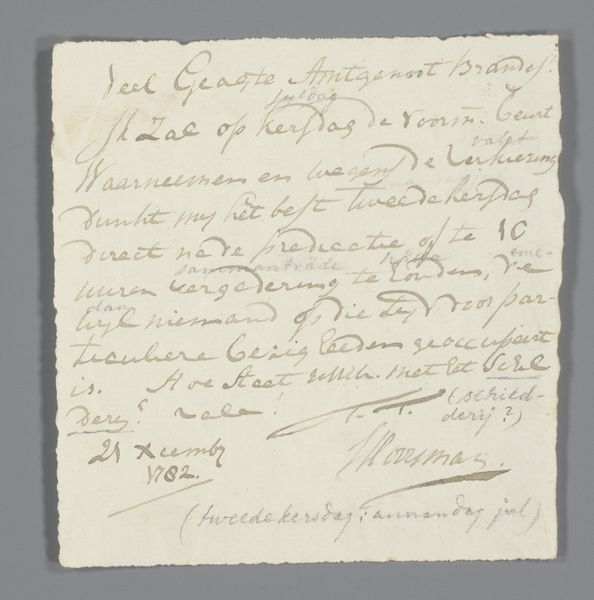 Veel Geagte Amtgenoot Brandes!
juldag
Ik Zal op kersdag de voorm. beurt
valet
Waarneemen en wegens de verkiezing
dunkt my het best tweede kersdag
direct na de predicatie of te 10
sammanträde hålla eme-
uuren vergadering te houden, de
dan
wyl niemand op die tyd voor par-
ticuliere bezigheeden geoccupeert
is. Hoe staet met het Schil
dery? vale!
T. T. (schild-
derij?)
21 Xcemb
1782.
(tweede kersdag: annandag jul)